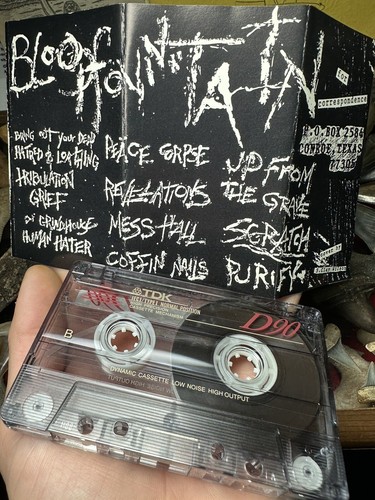 BLOOD FOUNTAIN
for
correspondence
P.O. BOX 2584
CONROE, TEXAS
77305
BRING OUT YOUR DEAD
HATRED & LOATHING
TRIBULATION
GRIEF
GRINDHOUSE
HUMAN HATER
PEACE CORPSE
REVELATIONS
MESS HALL
COFFIN NAILS
UP FROM
THE GRAVE
SCRATCH
PURIFY
TDK
IECI/TYPE I NORMAL POSITION
CASSETTE MECHANISM
D90
B
DYNAMIC CASSETTE LOW NOISE HIGH OUTPUT